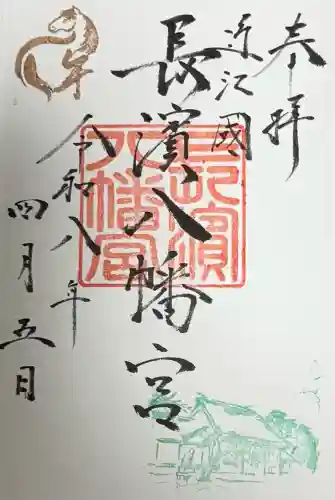 奉拝
近江國
長濱八幡宮
令和八年
四月五日
長濱八幡宮
午